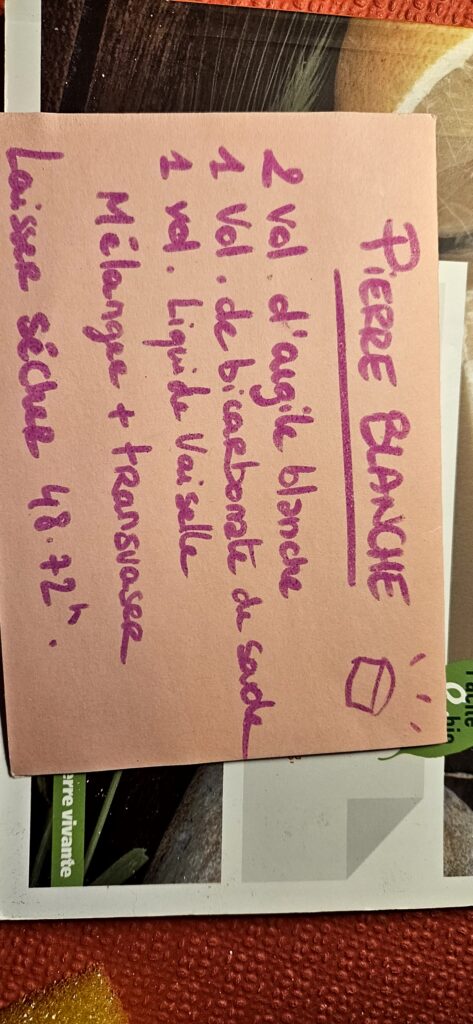 PIERRE BLANCHE
2 vol d'argile blanche
1 Vol. de bicarbonate de soude
1 vol. Liquide Vaiselle
Mélanger + transvaser
Laisser sécher 48.72h.
Facile
bio
erre vivante